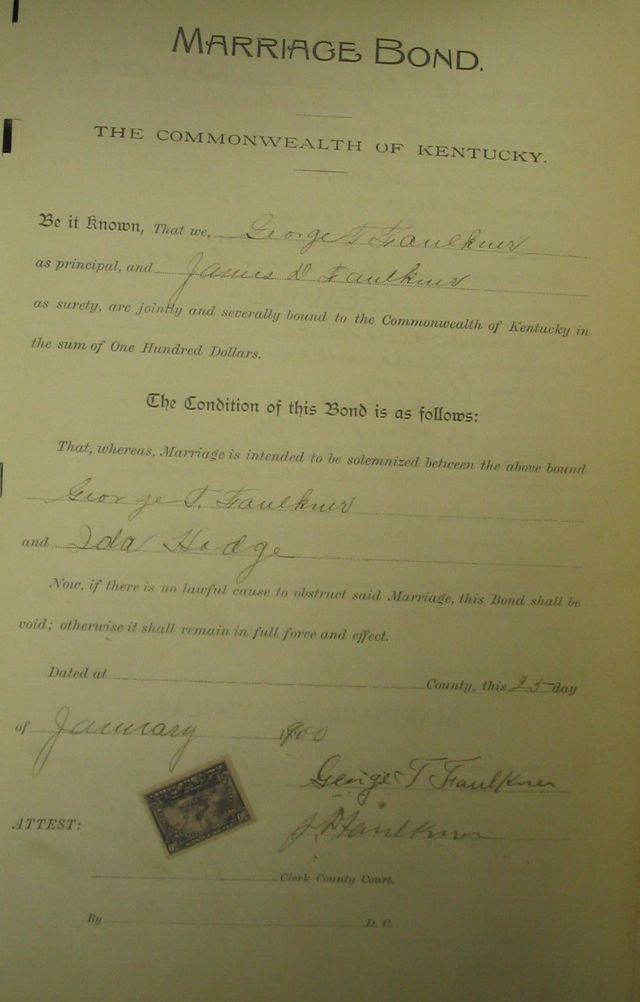 MARRIAGE BOND.
THE COMMONWEALTH OF KENTUCKY.
Be it Known, That we, George T Faulkner
as principal, and James D Faulkner
as surety, are jointly and severally bound to the Commonwealth of Kentucky in
the sum of One Hundred Dollars.
The Condition of this Bond is as follows:
That, whereas, Marriage is intended to be solemnized between the above bound
George T. Faulkner
and Ida Hodge
Now, if there is no lawful cause to obstruct said Marriage, this Bond shall be
void; otherwise it shall remain in full force and effect.
Dated at County, this 25 day
of January
George T Faulkner
ATTEST: J D Faulkner
Clerk County Court.
By D. C.